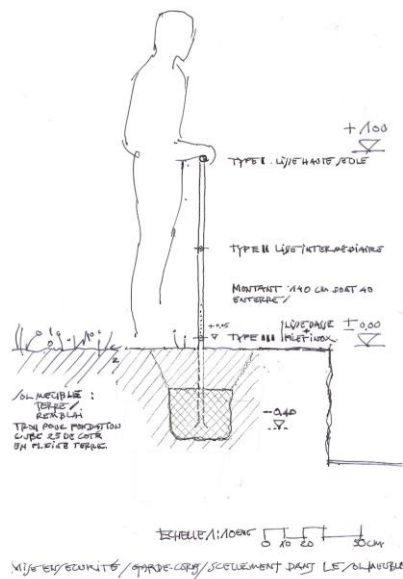 + 100
TYPE I. LISSE HAUTE SEULE
TYPE II LISSE INTERMEDIAIRE
MONTANT 140 CM DONT 40
ENTERRE/
+0,05
TYPE III LISSE BASSE
+
FILET INOX
± 0,00
SOL MEUBLE :
TERRE/
REMBLAI
TROU POUR FONDATION
CUBE 25 DE COTE
EN PLEINE TERRE.
-0,40
ECHELLE 1:10ENS
0 10 20 50CM
MISE EN SECURITE / GARDE-CORPS / SCELLEMENT DANS LE SOL MEUBLE